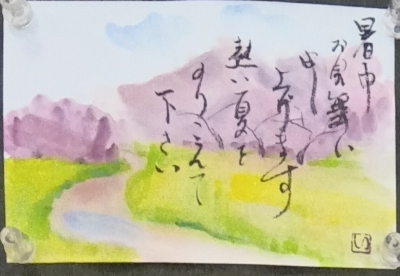 暑中
お見舞い
申し
上げます
熱い夏を
のりこえて
下さい